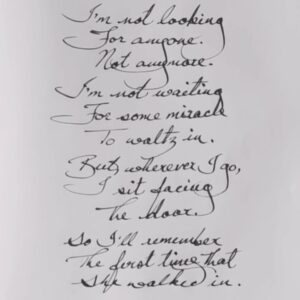 I'm not looking
For anyone.
Not anymore.
I'm not waiting
For some miracle
To waltz in.
But, wherever I go,
I sit facing
The door.
So I'll remember
The first time that
She walked in.